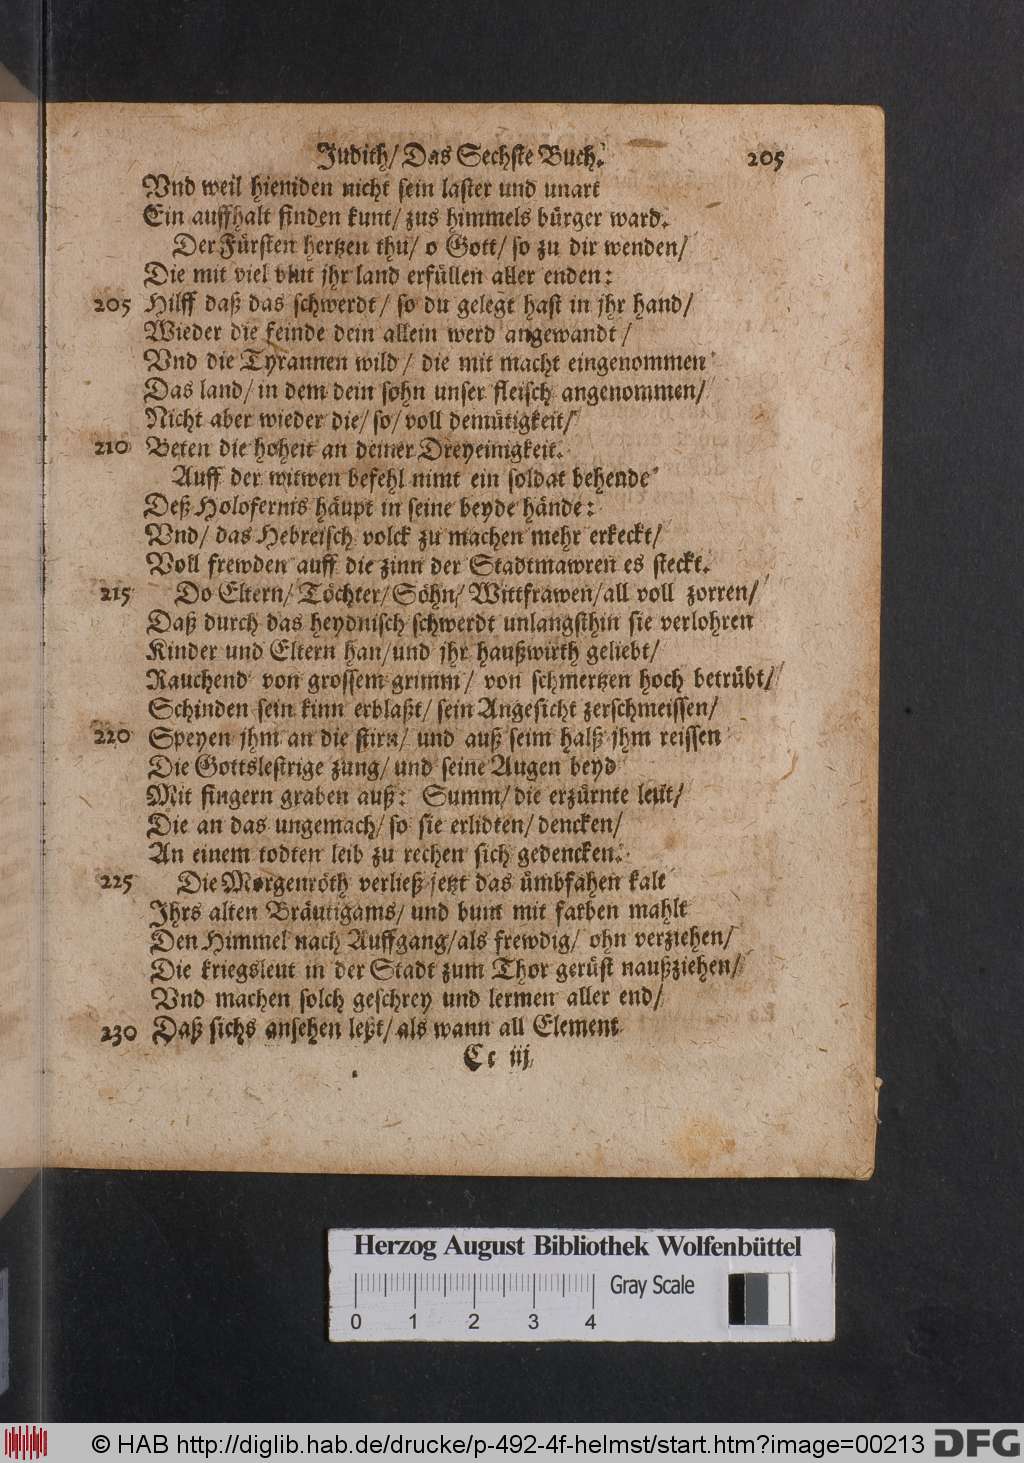 Judith/ Das Sechste Buch. 205
Vnd weil hieniden nicht sein laster und unart
Ein auffhalt finden kunt/ zus himmels bürger ward.
Der Fürsten hertzen thu/ o Gott/ so zu dir wenden/
Die mit viel blut jhr land erfüllen aller enden:
205 Hilff daß das schwerdt/ so du gelegt hast in jhr hand/
Wieder die feinde dein allein werd angewandt/
Vnd die Tyrannen wild/ die mit macht eingenommen
Das land/ in dem dein sohn unser fleisch angenommen/
Nicht aber wieder die/ so/ voll demütigkeit/
210 Beten die hoheit an deiner Dreyeinigkeit.
Auff der witwen befehl nimt ein soldat behende
Deß Holofernis häupt in seine beyde hände:
Vnd/ das Hebreisch volck zu machen mehr erkeckt/
Voll frewden auff die zinn der Stadtmawren es steckt.
215 Do Eltern/ Töchter/ Söhn/ Wittfrawen/ all voll zorren/
Daß durch das heydnisch schwerdt unlangsthin sie verlohren
Kinder und Eltern han/ und jhr haußwirth geliebt/
Rauchend von grossem grimm/ von schmertzen hoch betrübt/
Schinden sein kinn erblaßt/ sein Angesicht zerschmeissen/
220 Speyen jhm an die stirn/ und auß seim halß jhm reissen
Die Gottslestrige zung/ und seine Augen beyd
Mit fingern graben auß: Summ/ die erzürnte leut/
Die an das ungemach/ so sie erlidten/ dencken/
An einem todten leib zu rechen sich gedencken.
225 Die Morgenröth verließ jetzt das ümbfahen kalt
Ihrs alten Bräutigams/ und bunt mit farben mahlt
Den Himmel nach Auffgang/ als frewdig/ ohn verziehen/
Die kriegsleut in der Stadt zum Thor gerüst naußziehen/
Vnd machen solch geschrey und lermen aller end/
230 Daß sichs ansehen leßt/ als wann all Element
Cc iij
Herzog August Bibliothek Wolfenbüttel
Gray Scale
0 1 2 3 4
© HAB http://diglib.hab.de/drucke/p-492-4f-helmst/start.htm?image=00213 DFG